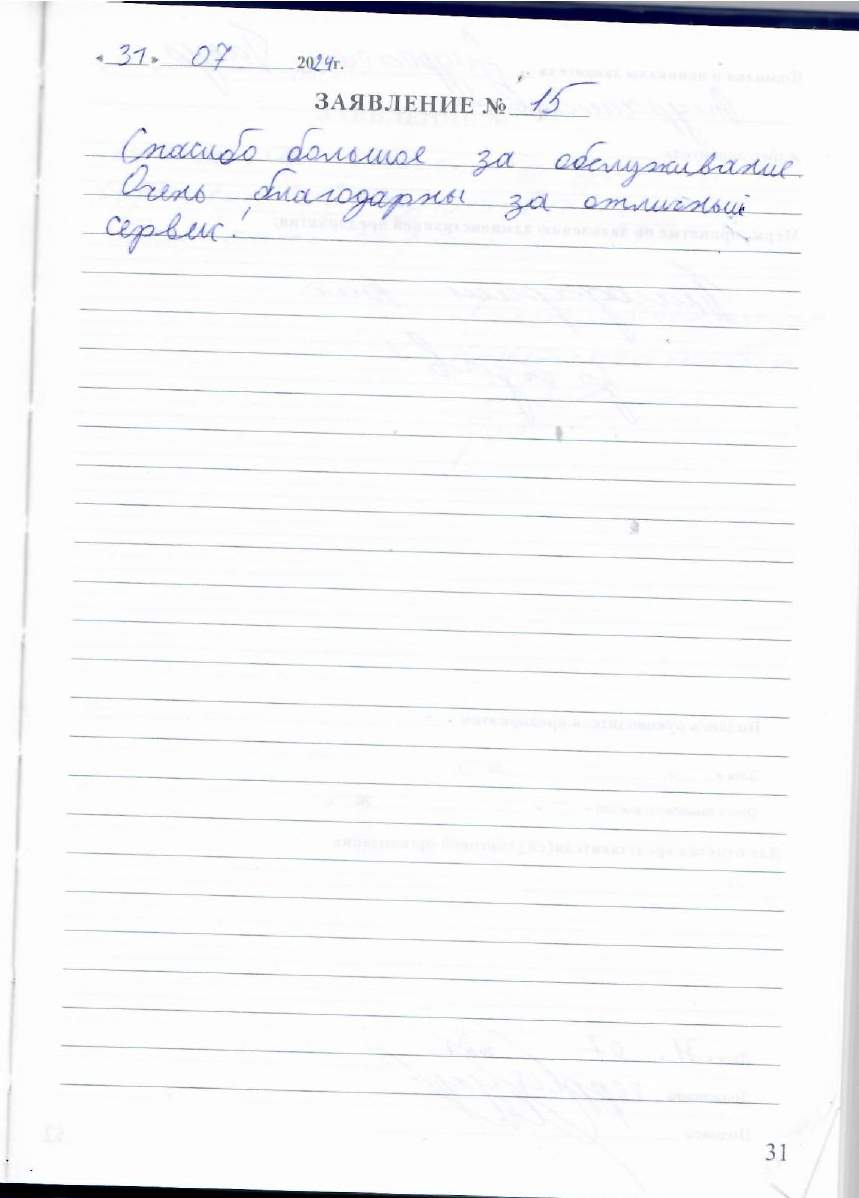 « 31 » 07 2024г.
ЗАЯВЛЕНИЕ № 15
Спасибо большое за обслуживание
Очень благодарны за отличный
сервис!
31